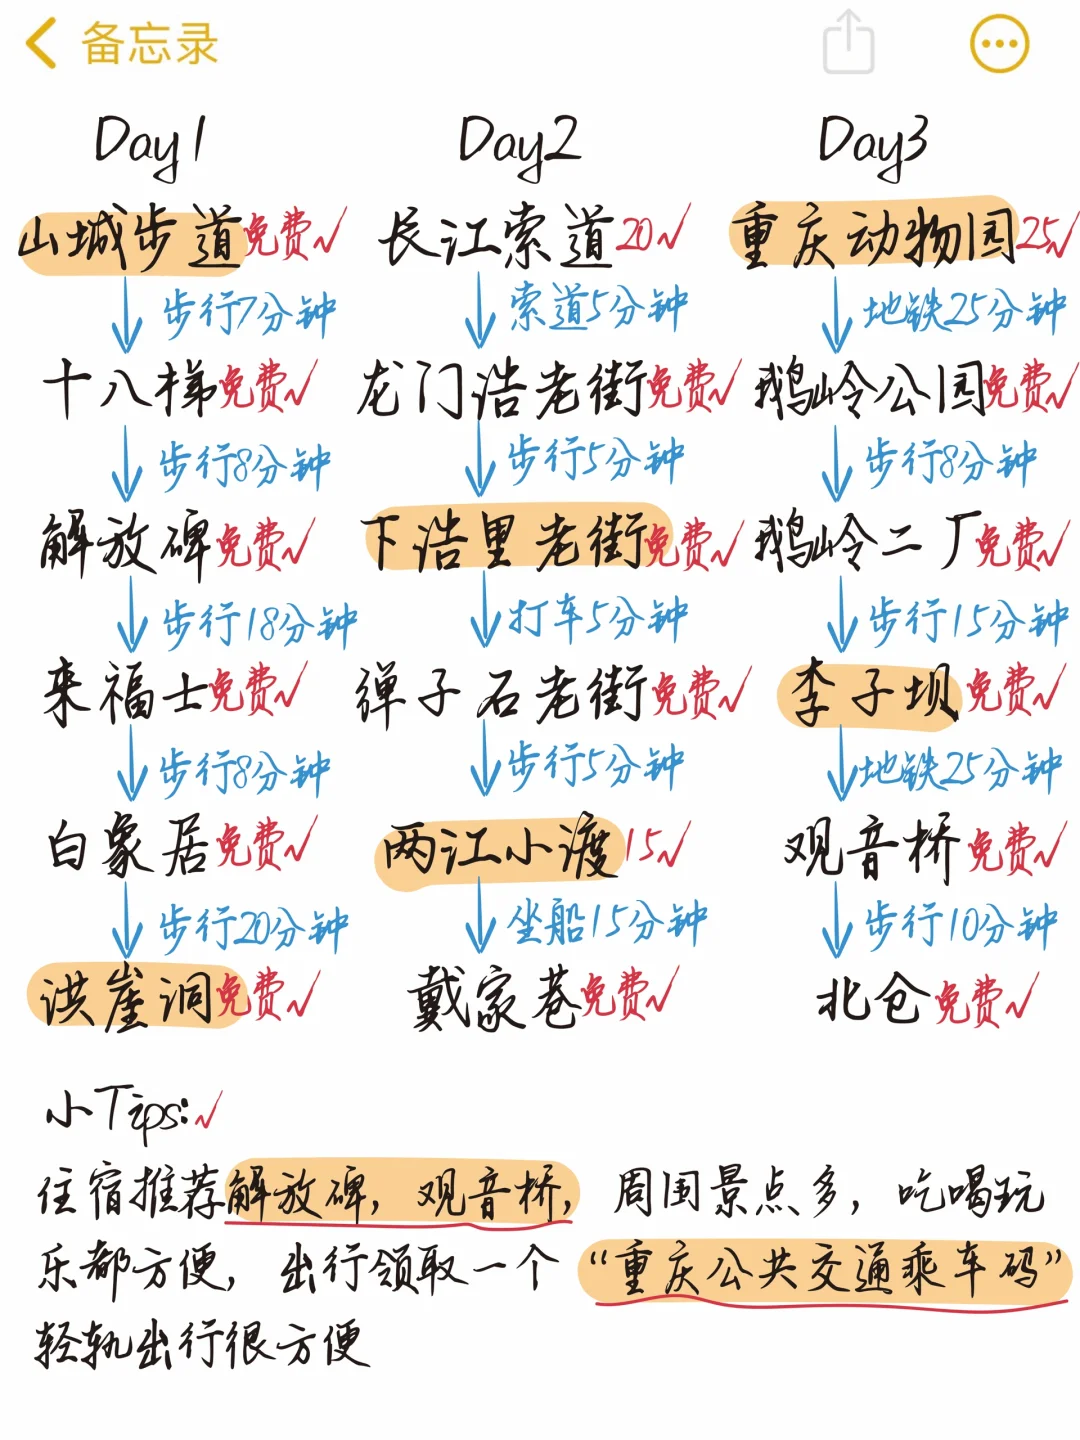 备忘录
Day1 Day2 Day3
山城步道免费√ 长江索道20√ 重庆动物园25√
步行7分钟 索道5分钟 地铁25分钟
十八梯免费√ 龙门浩老街免费√ 鹅岭公园免费√
步行8分钟 步行5分钟 步行8分钟
解放碑免费√ 下浩里老街免费√ 鹅岭二厂免费√
步行18分钟 打车5分钟 步行15分钟
来福士免费√ 弹子石老街免费√ 李子坝免费√
步行8分钟 步行5分钟 地铁25分钟
白象居免费√ 两江小渡15√ 观音桥免费√
步行20分钟 坐船15分钟 步行10分钟
洪崖洞免费√ 戴家巷免费√ 北仓免费√
小Tips:√
住宿推荐解放碑,观音桥,周围景点多,吃喝玩
乐都方便,出行领取一个“重庆公共交通乘车码”
轻轨出行很方便